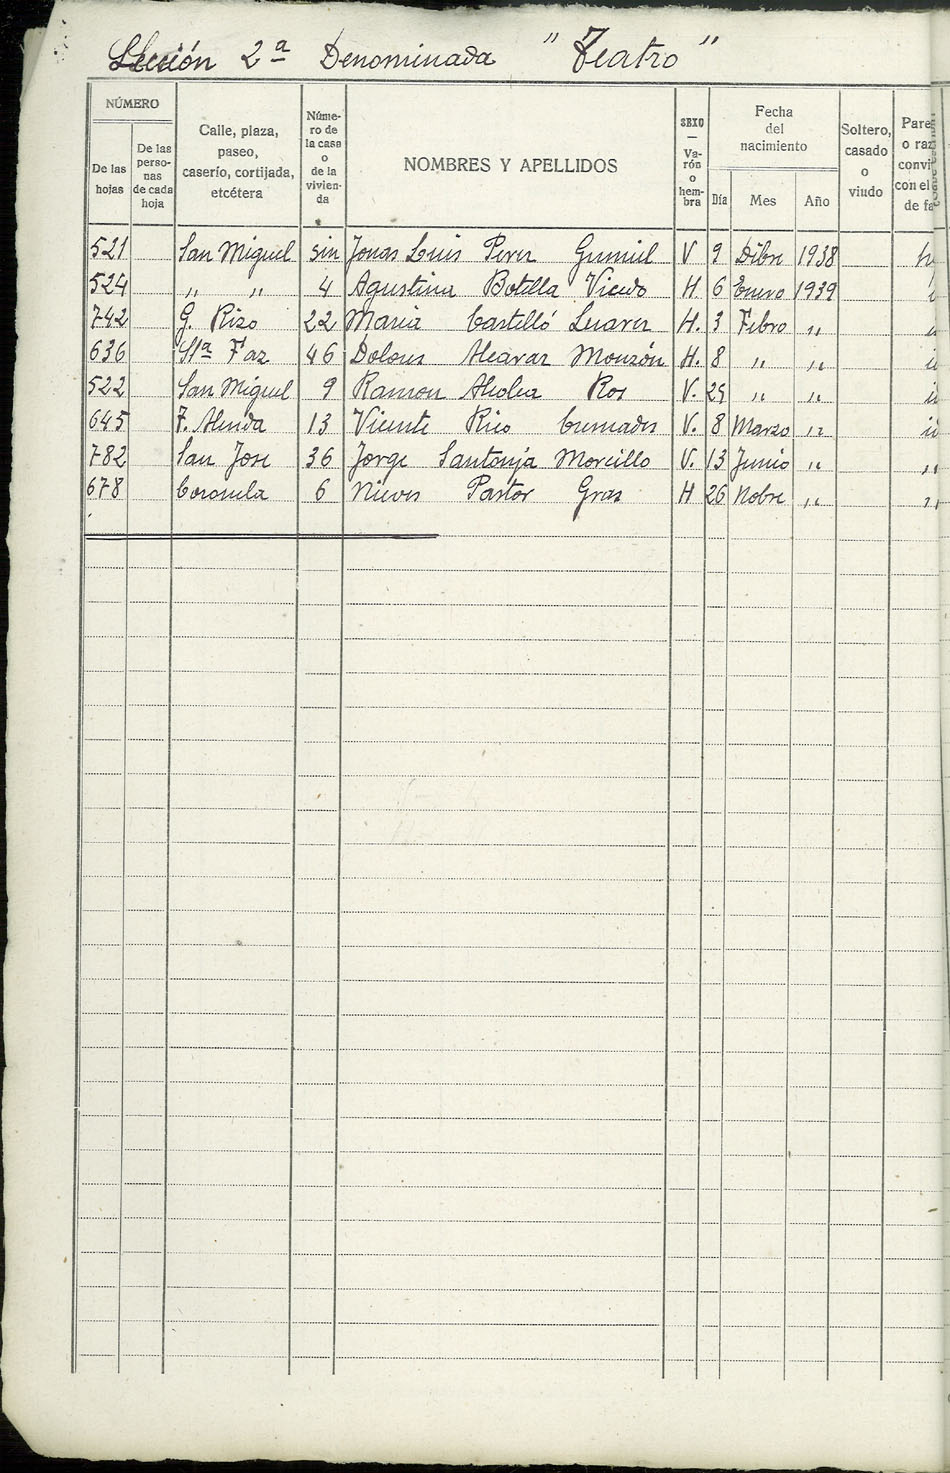 Sección 2ª Denominada "Teatro"
NÚMERO
De las hojas
De las personas de cada hoja
Calle, plaza, paseo, caserío, cortijada, etcétera
Número de la casa o de la vivienda
NOMBRES Y APELLIDOS
SEXO — Varón o hembra
Fecha del nacimiento
Día Mes Año
Soltero, casado o viudo
Pare
o raz
convi
con el
de fa
521 San Miguel sin Jonas Luis Perez Gumiel V 9 Dibre 1938
524 " " 4 Agustina Botella Vicedo H 6 Enero 1939
742 G. Rizo 22 Maria Castelló Linares H. 3 Febro "
636 Stª Faz 46 Dolores Alcaraz Monzón H. 8 " "
522 San Miguel 9 Ramon Alcolea Ros V. 25 " "
645 F. 13 Vicente Rico Cremades V. 8 Marzo "
782 San Jose 36 Jorge Santonja Morcillo V. 13 Junio " "
678 Coronela 6 Nieves Pastor Gras H 26 Nobre " "